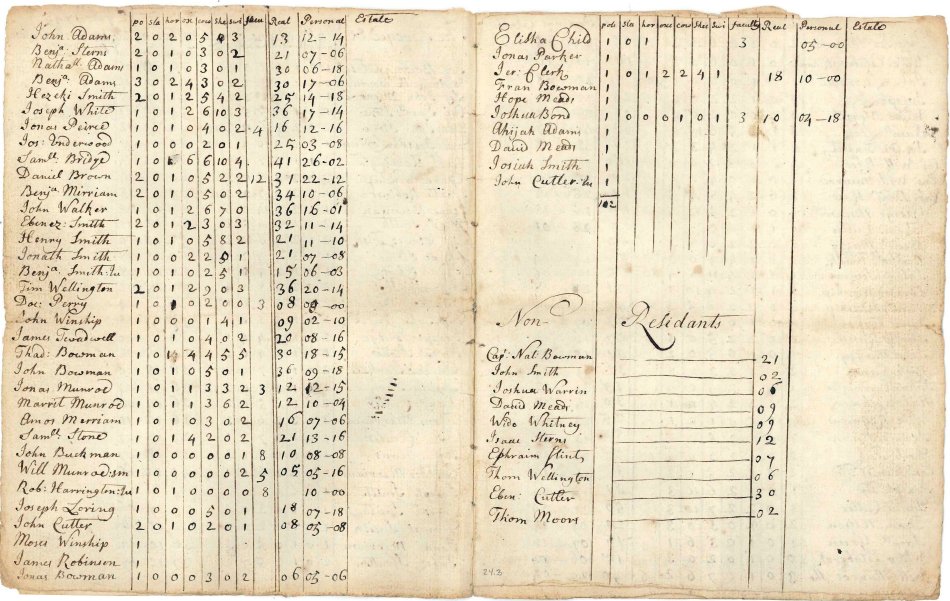 po sla hor oxe cow she swi facu Real Personal Estate
John Adams 2 0 2 0 5 4 3 13 12-14
Benja. Sterns 2 0 1 0 3 0 2 21 07-06
Nathall. Adams 1 0 1 0 3 0 1 30 06-18
Benja. Adams 3 0 2 4 3 0 2 30 17-06
Hezeki Smith 2 0 1 2 5 4 2 25 14-18
Joseph White 1 0 1 2 6 10 3 36 17-14
Jonas Peirce 1 0 1 0 4 0 2 4 16 12-16
Jos: Underwood 1 0 0 0 2 0 1 25 03-08
Samll Bridge 1 0 6 6 10 4 41 26-02
Daniel Brown 2 0 1 0 5 2 2 12 31 22-12
Benja Mirriam 2 0 1 0 5 0 2 34 10-06
John Walker 1 0 1 2 6 7 0 36 16-01
Ebinez: Smith 2 0 1 2 3 0 3 32 11-14
Henry Smith 1 0 1 0 5 8 2 21 11-10
Jonath Smith 1 0 0 2 2 5 1 21 07-08
Benja. Smith 1 0 1 0 2 5 1 15 06-03
Tim Wellington 2 0 1 2 9 0 3 36 20-14
Doc: Perry 1 0 1 0 2 0 0 3 08 09-00
John Winship 1 0 0 0 1 4 1 09 02-10
James Treadwell 1 0 1 0 4 0 2 20 08-16
Thad: Bowman 1 0 4 4 5 5 30 18-15
John Bowman 1 0 1 0 5 0 1 36 09-18
Jonas Munroe 1 0 1 1 3 3 2 3 12 12-15
Marrit Munroe 1 0 1 1 3 6 2 12 10-04
Amos Merriam 1 0 1 0 3 0 2 16 07-06
Samll. Stone 1 0 1 4 2 0 2 21 13-16
John Buckman 1 0 0 0 0 0 1 8 10 08-08
Will Munroe 1 0 1 0 0 0 2 5 05 05-16
Rob: Harrington 1 0 1 0 0 0 0 8 10-00
Joseph Loring 1 0 0 0 5 0 1 18 07-18
John Cutler 2 0 1 0 2 0 1 08 05-08
Moses Winship 1
James Robinson 1
Jonas Bowman 1 0 0 0 3 0 2 06 05-06
pole sla hor oxe cow she swi faculty Real Personal Estate
Elisha Child 1 0 1 3 05-00
Jonas Parker 1
Jer: Clerk 1 0 1 2 2 4 1 18 10-00
Fran Bowman 1
Hope Meads 1
Joshua Bond 1 0 0 0 1 0 1 3 10 04-18
Ahijah Adams 1
David Meads 1
Josiah Smith 1
John Cutler 1
102
Non Residants
Capt. Nat Bowman 21
John Smith 02
Joshua Warrin
David Meads 09
Wido Whitney 09
Isaac Sterns 12
Ephraim 07
Thom Wellington 06
Eben: Cutler 30
Thom Moors 02
24.3